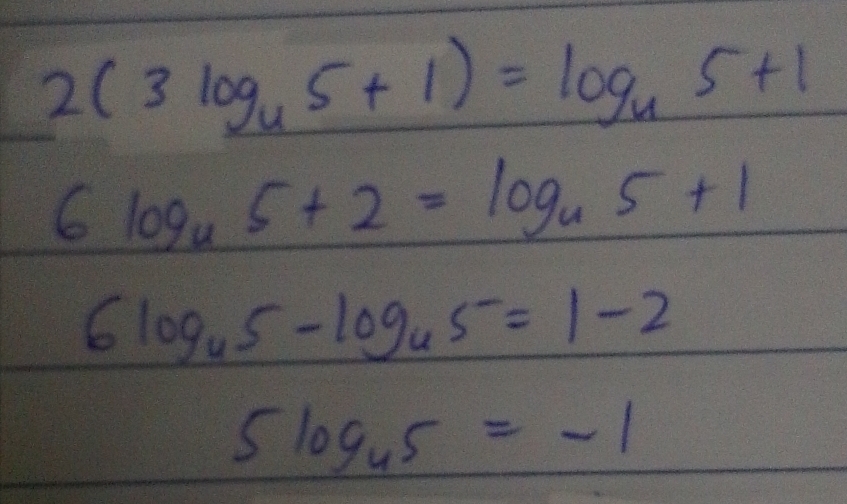 2(3 logᵤ 5 + 1) = logᵤ 5 + 1
6 logᵤ 5 + 2 = logᵤ 5 + 1
6 logᵤ 5 - logᵤ 5 = 1 - 2
5 logᵤ 5 = -1